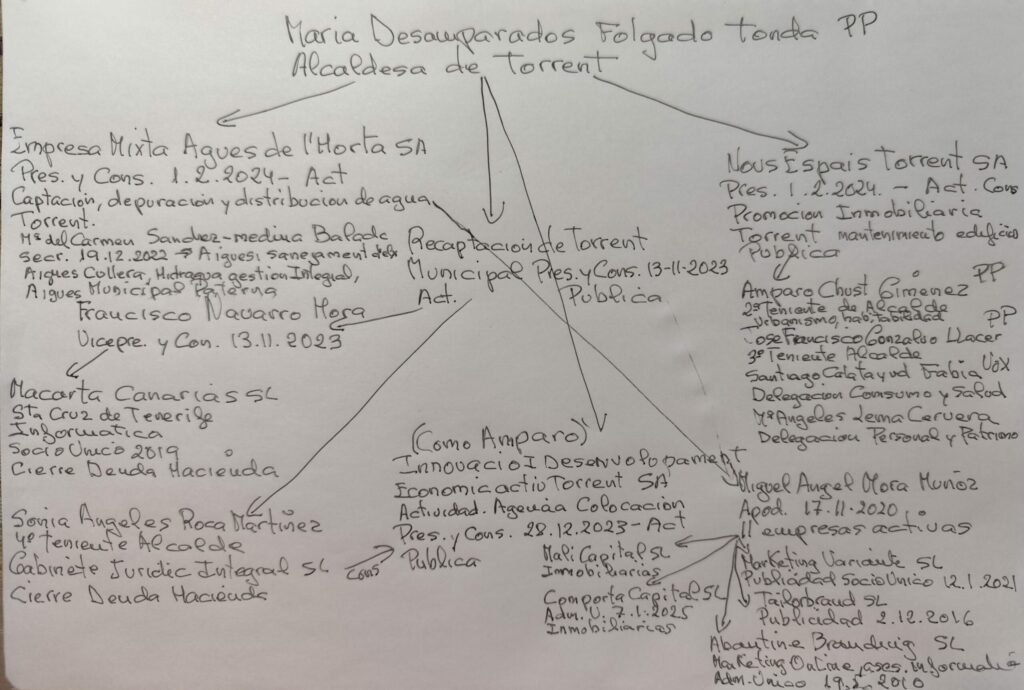 Maria Desamparados Folgado Tonda PP
Alcaldesa de Torrent
Empresa Mixta Agues de l'Horta SA
Pres. y Cons. 1.2.2024 - Act
Captacion, depuracion y distribucion de agua
Torrent.
Mª del Carmen Sanchez-medina Balada
Secr. 19.12.2022 → Aigues i sanejament
Aigues Cullera, Hidraqua gestion Integral,
Aigues Municipal Paterna
Francisco Navarro Mora
Vicepre. y Con. 13.11.2023
Macarta Canarias SL
Sta Cruz de Tenerife
Informatica
Socio Unico 2019
Cierre Deuda Hacienda
Sonia Angeles Roca Martinez
4º teniente Alcalde
Gabinete Juridic Integral SL Cons
Cierre Deuda Hacienda
Recaptacion de Torrent
Municipal Pres. y Cons. 13-11-2023
Act. Publica
(Como Amparo)
Innovacio I Desenvolopament
Economic actiu Torrent SA
Actividad. Agencia Colocacion
Pres. y Cons. 28.12.2023 - Act
Publica
Nous Espais Torrent SA
Pres. 1.2.2024. - Act. Cons
Promocion Inmobiliaria
Torrent mantenimiento edificios
Publica
Amparo Chust Gimenez PP
2º Teniente de Alcalde
Urbanismo, habitabilidad
Jose Francisco Gonzalvo Llacer PP
3º Teniente Alcalde
Santiago Calatayud Fabia Vox
Delegacion Consumo y Salud
Mª Angeles Lerma Cervera
Delegacion Personal y Patrimo
Miguel Angel Mora Muñoz
Apod. 17.11.2020
11 empresas activas
Mali Capital SL
Inmobiliarias
Comporta Capital SL
Adm. U. 7.1.2025
Inmobiliarias
Marketing Variante SL
Publicidad Socio Unico 12.1.2021
Tailorbrand SL
Publicidad 2.12.2016
Abantine Branding SL
Marketing Online, ases. informatic
Adm. Unico 19.2.2010